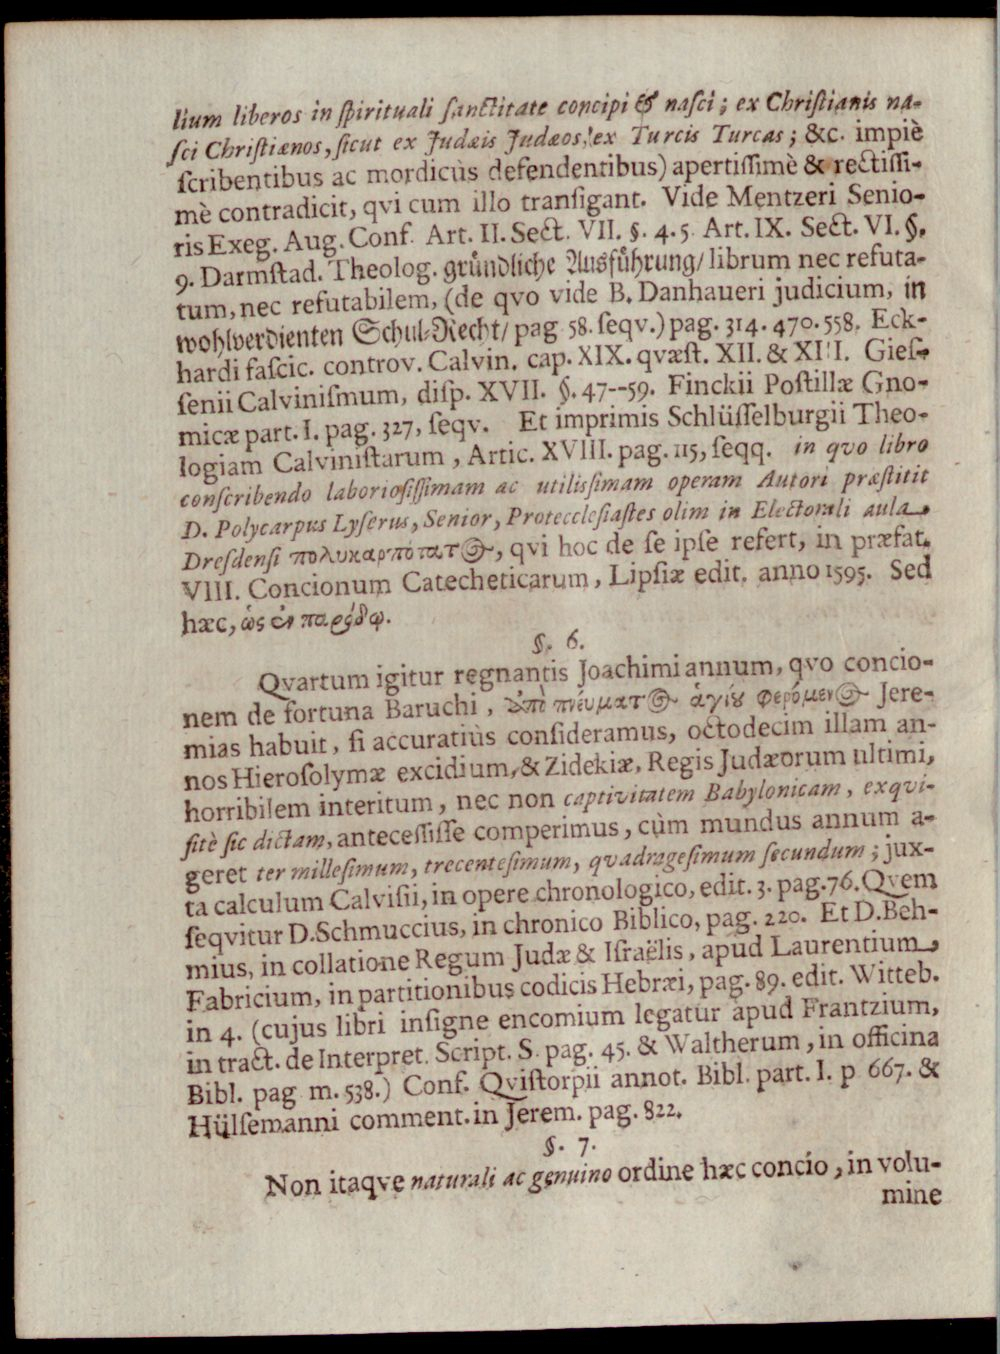 lium liberos in ſpirituali ſanctitate concipi & naſci; ex Chriſtianis na-
ſci Chriſtianos, ſicut ex Judæis Judæos, ex Turcis Turcas; &c. impiè
ſcribentibus ac mordicùs defendentibus) apertiſſimè & rectiſſi-
mè contradicit, qvi cum illo tranſigant. Vide Mentzeri Senio-
ris Exeg. Aug. Conf. Art. II. Sect. VII. §. 4. 5 Art. IX. Sect. VI. §.
9. Darmſtad. Theolog. gründliche Ausführung/ librum nec refuta-
tum, nec refutabilem, (de qvo vide B. Danhaueri judicium, in
wohlverdienten Schul-Recht/ pag 58. ſeqv.) pag. 314. 470. 558. Eck-
hardi faſcic. controv. Calvin. cap. XIX. qvæſt. XII. & XIII. Gieſ-
ſenii Calviniſmum, diſp. XVII. §. 47--59. Finckii Poſtillæ Gno-
micæ part. I. pag. 327, ſeqv. Et imprimis Schlüſſelburgii Theo-
logiam Calviniſtarum, Artic. XVIII. pag. 115, ſeqq. in qvo libro
conſcribendo laborioſiſſimam ac utilisſimam operam Autori præſtitit
D. Polycarpus Lyſerus, Senior, Proteccleſiaſtes olim in Electorali aula
Dresdenſi πολυκαρπότατ⊙, qvi hoc de ſe ipſe refert, in præfat.
VIII. Concionum Catecheticarum, Lipſiæ edit. anno 1595. Sed
hæc, ὡς ἐν παρόδῳ.
§. 6.
Qvartum igitur regnantis Joachimi annum, qvo concio-
nem de fortuna Baruchi, ὑπὸ πνέυματ⊙ ἁγίȣ φερόμεν⊙ Jere-
mias habuit, ſi accuratiùs conſideramus, octodecim illam an-
nos Hieroſolymæ excidium, & Zidekiæ, Regis Judæorum ultimi,
horribilem interitum, nec non captivitatem Babylonicam, exqvi-
ſitè ſic dictam, anteceſſiſſe comperimus, cùm mundus annum a-
geret ter milleſimum, trecenteſimum, qvadrageſimum ſecundum; jux-
ta calculum Calviſii, in opere chronologico, edit. 3. pag. 76. Qvem
ſeqvitur D. Schmuccius, in chronico Biblico, pag. 220. Et D. Beh-
mius, in collatione Regum Judæ & Iſraëlis, apud Laurentium
Fabricium, in partitionibus codicis Hebræi, pag. 89. edit. Witteb.
in 4. (cujus libri inſigne encomium legatur apud Frantzium,
in tract. de Interpret. Script. S. pag. 45. & Waltherum, in officina
Bibl. pag m. 538.) Conf. Qviſtorpii annot. Bibl. part. I. p 667. &
Hülſemanni comment. in Jerem. pag. 822.
§. 7.
Non itaqve naturali ac genuino ordine hæc concio, in volu-
mine